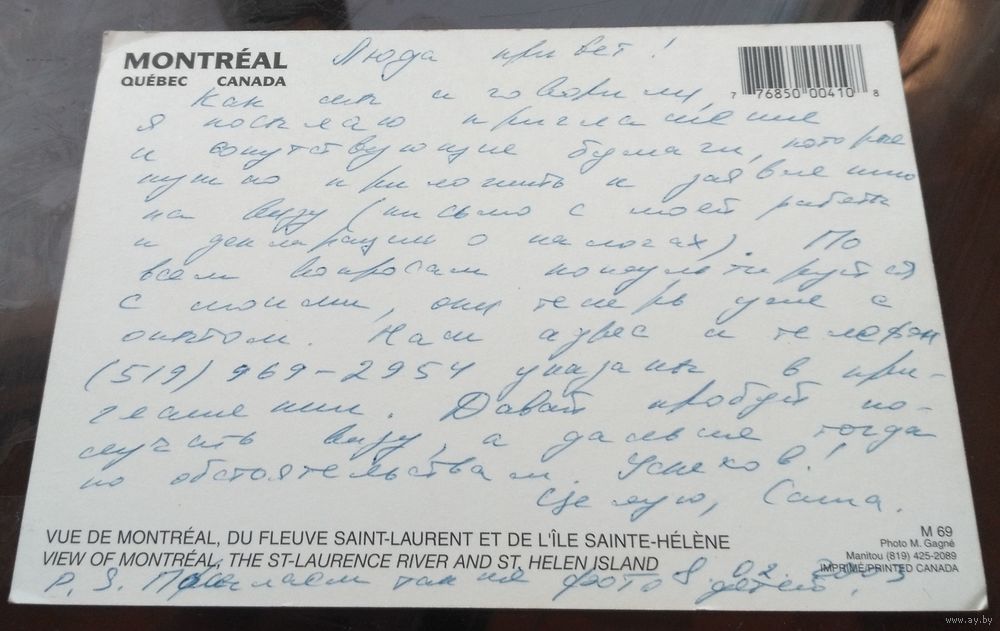 MONTRÉAL
QUÉBEC CANADA
Люда привет!
7 76850 00410 8
Как мы и говорили,
я посылаю приглашение
и сопутствующие бумаги, которые
нужно приложить к заявлению
на визу (письмо с моей работы
и декларацию о налогах). По
всем вопросам консультируйся
с моими, они теперь уже с
опытом. Наш адрес и телефон
(519) 969-2954 указаны в при-
глашении. Давай пробуй по-
лучать визу, а дальше тогда
по обстоятельствам. Успехов!
Целую, Саша.
VUE DE MONTRÉAL, DU FLEUVE SAINT-LAURENT ET DE L'ÎLE SAINTE-HÉLÈNE
VIEW OF MONTRÉAL, THE ST-LAURENCE RIVER AND ST. HELEN ISLAND
M 69
Photo M. Gagné
Manitou (819) 425-2089
IMPRIMÉ/PRINTED CANADA
8.02.2003
P.S. Посылаем также фото детей.
www.ay.by